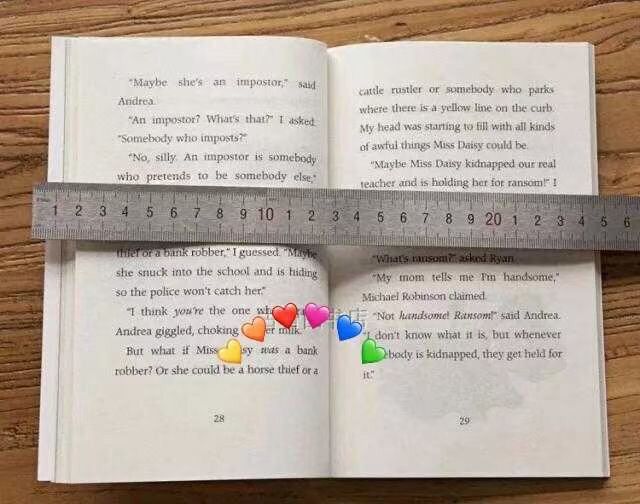 "Maybe she's an impostor," said
Andrea.
"An impostor? What's that?" I asked.
"Somebody who imposts?"
"No, silly. An impostor is somebody
who pretends to be somebody else,"
1 2 3 4 5 6 7 8 9 10 1 2 3 4 5 6 7 8 9 20 1 2 3 4 5 6
thief or a bank robber," I guessed. "Maybe
she snuck into the school and is hiding
so the police won't catch her."
"I think you're the one
Andrea giggled, choking milk.
But what if Miss was a bank
robber? Or she could be a horse thief or a
28
cattle rustler or somebody who parks
where there is a yellow line on the curb.
My head was starting to fill with all kinds
of awful things Miss Daisy could be.
"Maybe Miss Daisy kidnapped our real
teacher and is holding her for ransom!" I
"What's ransom?" asked Ryan.
"My mom tells me I'm handsome,"
Michael Robinson claimed.
"Not handsome! Ransom!" said Andrea.
"I don't know what it is, but whenever
is kidnapped, they get held for
it."
29